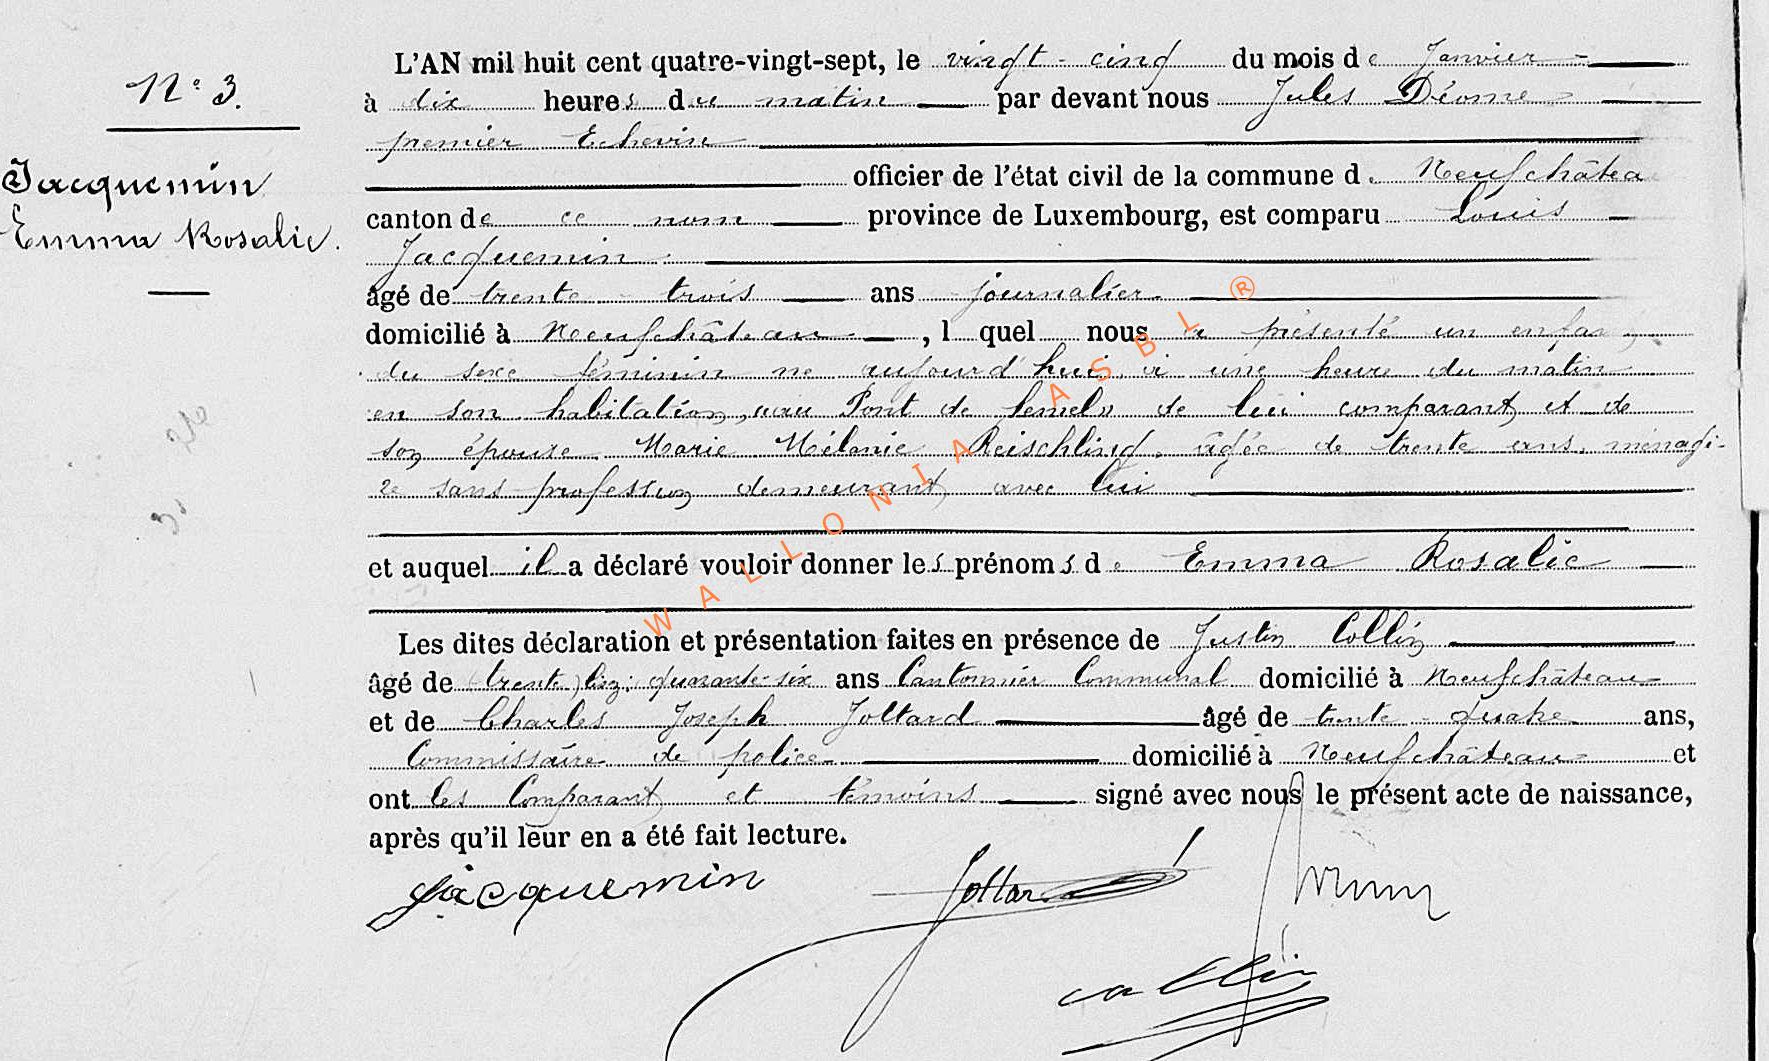 N° 3.
Jacquemin
Emma Rosalie.
L'AN mil huit cent quatre-vingt-sept, le vingt-cinq du mois de Janvier
à dix heures du matin par devant nous Jules Déome
premier Echevin
officier de l'état civil de la commune de Neufchâteau
canton de ce nom province de Luxembourg, est comparu Louis
Jacquemin
âgé de trente trois ans journalier
domicilié à Neufchâteau, l quel nous a présenté un enfant
du sexe féminin né aujourd'hui à une heure du matin
en son habitation, au Pont de de lui comparant et de
son épouse Marie Mélanie Reischling, âgée de trente ans, ménagè-
re sans profession demeurant avec lui
et auquel il a déclaré vouloir donner les prénoms de Emma Rosalie
Les dites déclaration et présentation faites en présence de Justin Collin
âgé de (trente) quarante-six ans Cantonnier Communal domicilié à Neufchâteau
et de Charles Joseph Jottard âgé de trente-quatre ans,
Commissaire de police domicilié à Neufchâteau et
ont les Comparant et témoins signé avec nous le présent acte de naissance,
après qu'il leur en a été fait lecture.
Jacquemin Jottard
Collin
WALLONIA ASBL ®